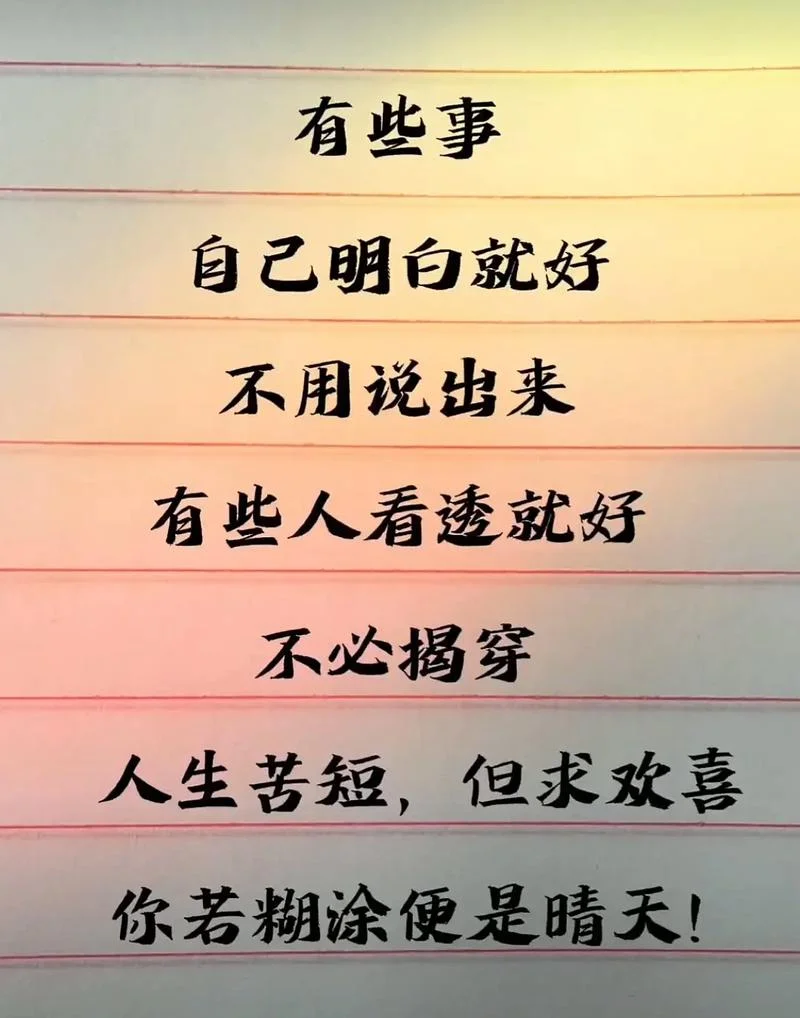 有些事
自己明白就好
不用说出来
有些人看透就好
不必揭穿
人生苦短，但求欢喜
你若糊涂便是晴天！